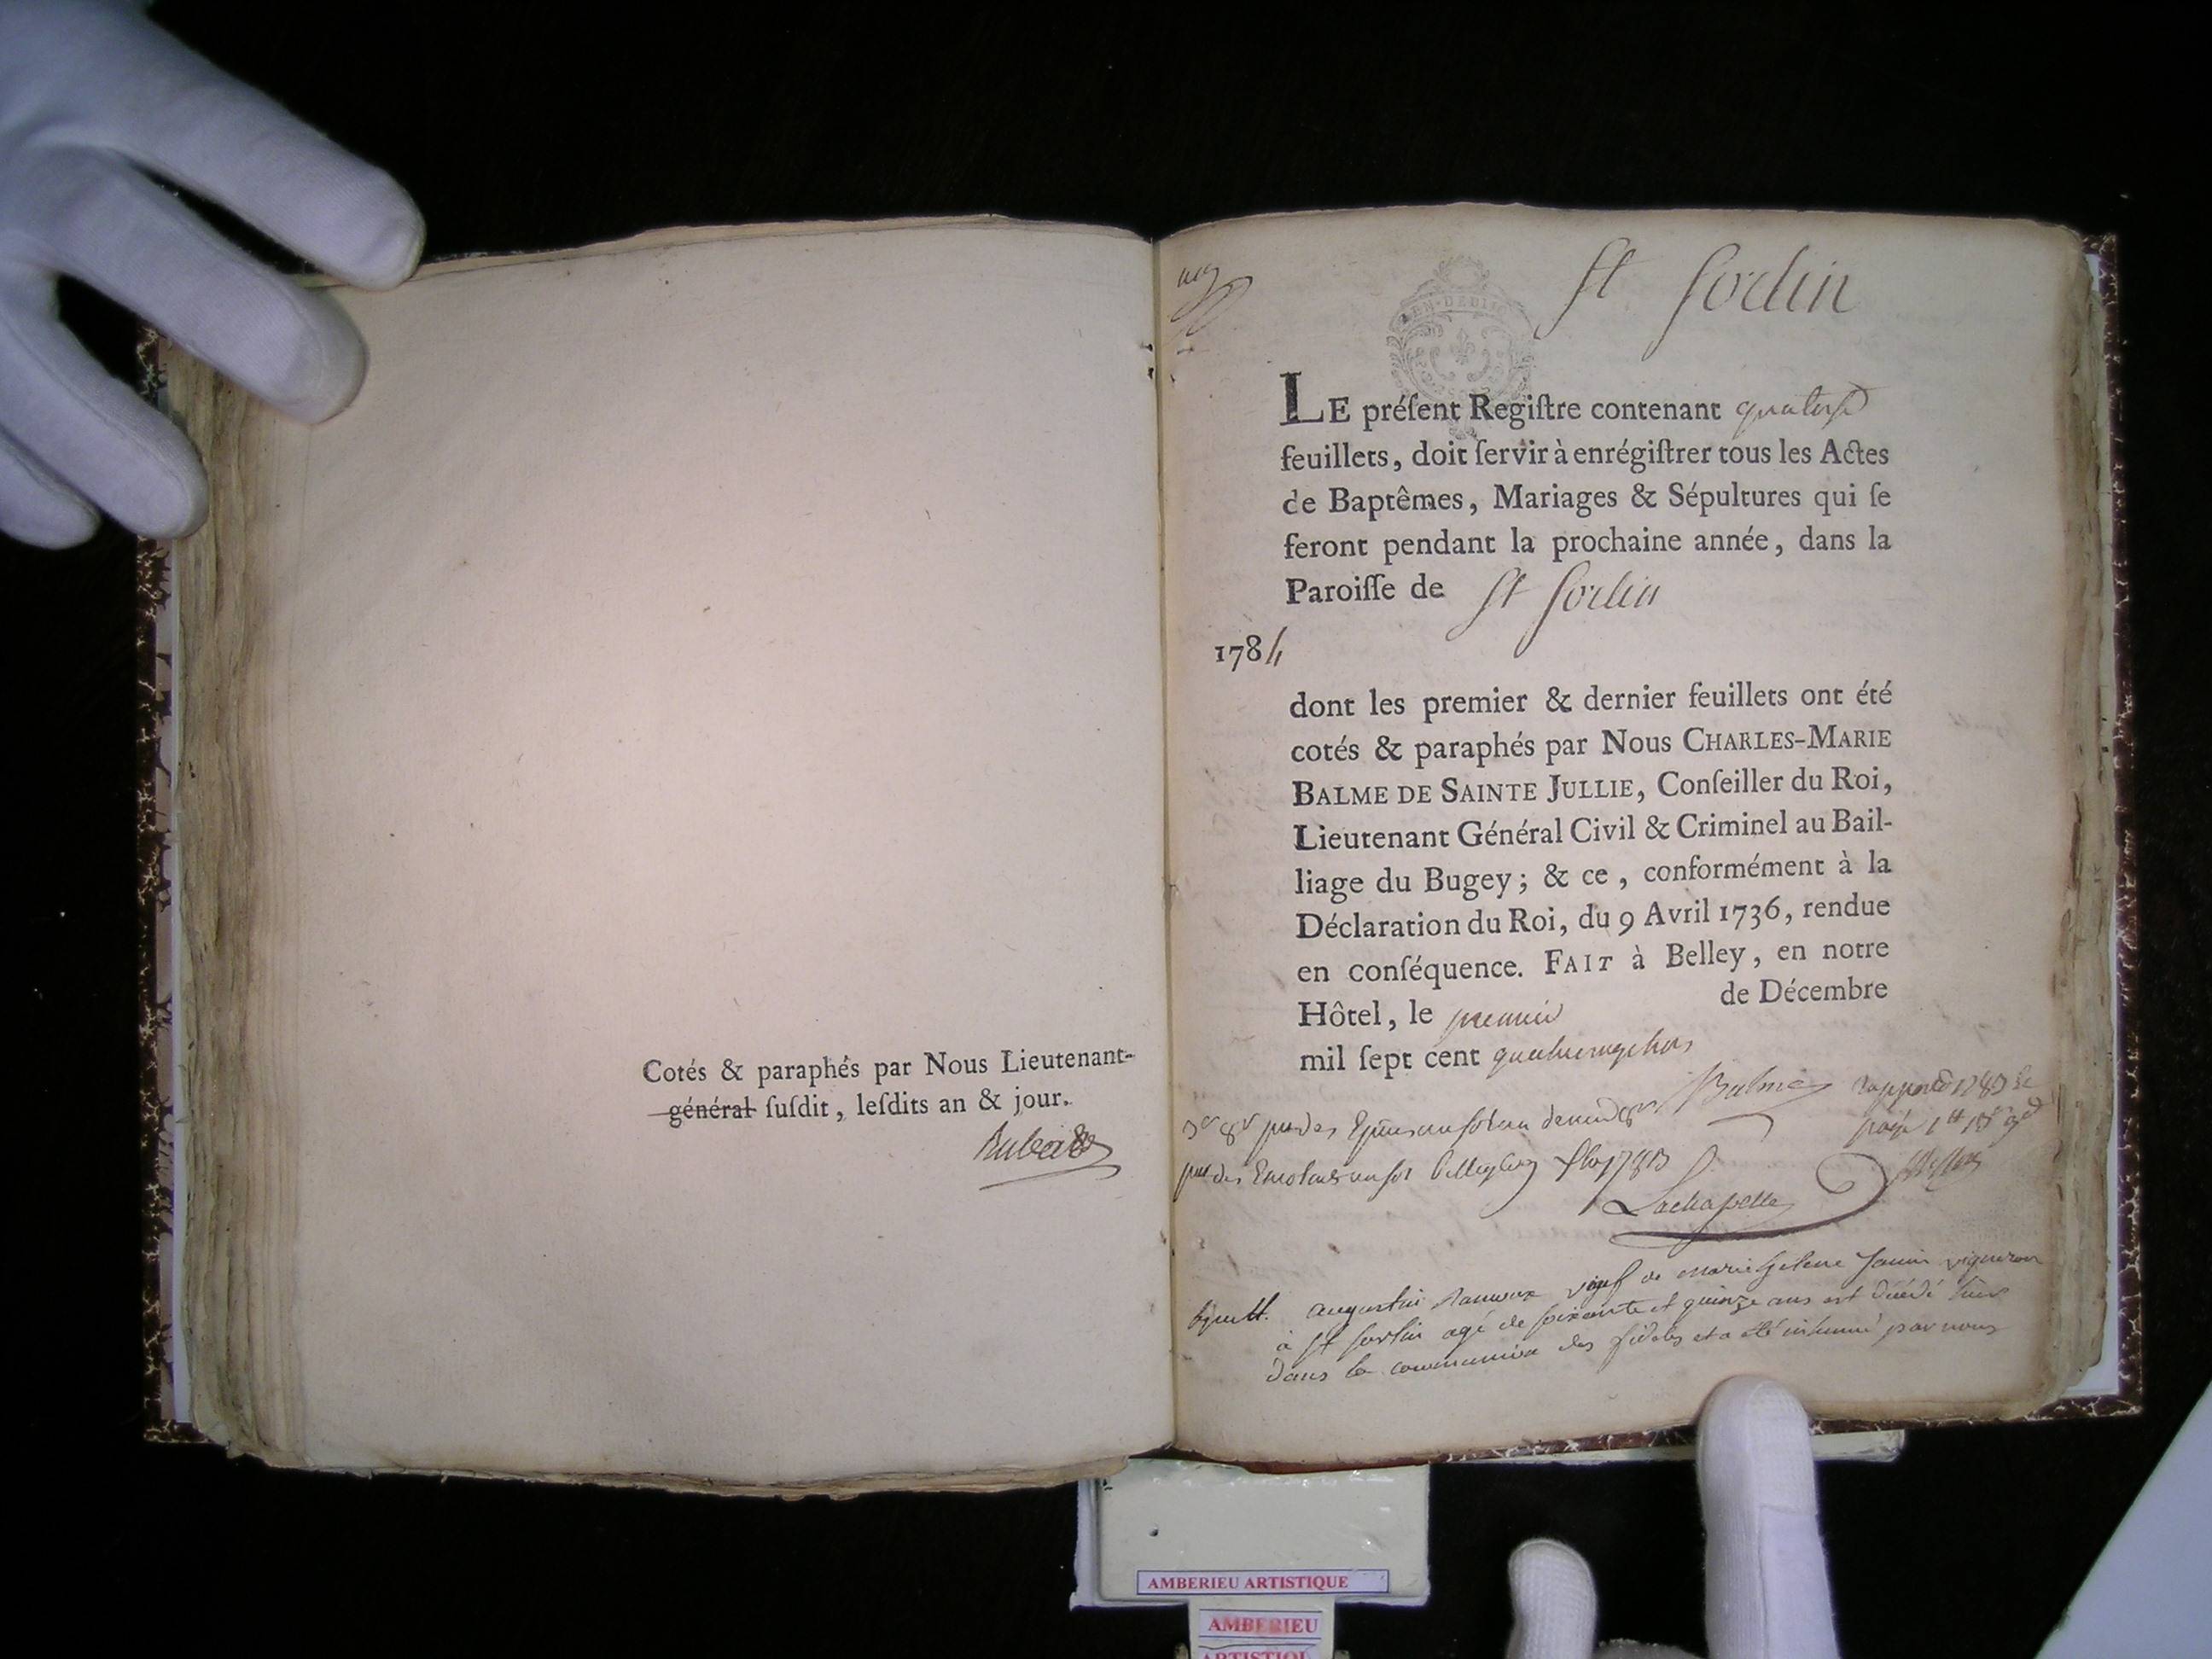 Cotés & paraphés par Nous Lieutenant-
général ſuſdit, leſdits an & jour.
St Sorlin
GEN·DE DIJO
LE préſent Regiſtre contenant quatorze
feuillets, doit ſervir à enrégiſtrer tous les Actes
de Baptêmes, Mariages & Sépultures qui ſe
feront pendant la prochaine année, dans la
Paroiſſe de St Sorlin
1784
dont les premier & dernier feuillets ont été
cotés & paraphés par Nous CHARLES-MARIE
BALME DE SAINTE JULLIE, Conſeiller du Roi,
Lieutenant Général Civil & Criminel au Bail-
liage du Bugey; & ce, conformément à la
Déclaration du Roi, du 9 Avril 1736, rendue
en conſéquence. FAIT à Belley, en notre
Hôtel, le premier de Décembre
mil ſept cent quatrevingttrois
Balme
Lachapelle
augustin veuf de marie helene vigneron
à St Sorlin agé de soixante et quinze ans est décédé hier
dans la communion des fideles et a été inhumé par nous
AMBERIEU ARTISTIQUE
AMBERIEU
ARTISTIQUE